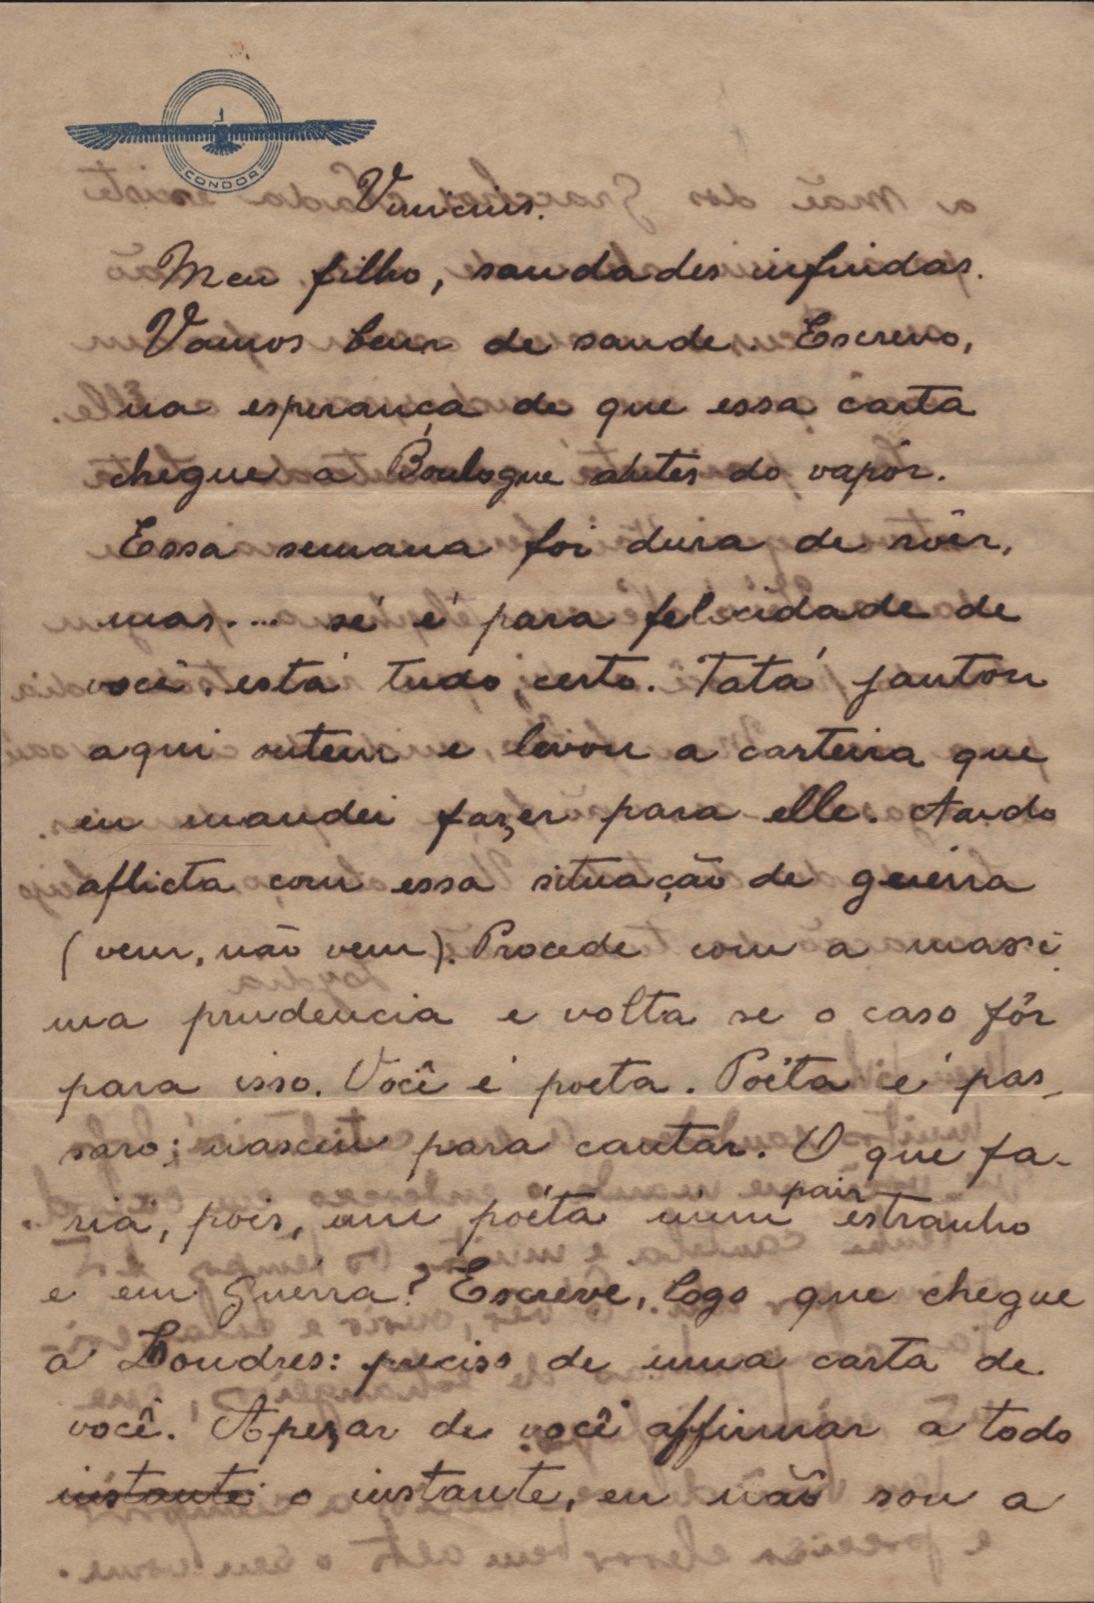 CONDOR
Vinicius.
Meu filho, saudades infindas.
Vamos bem de saude. Escrevo,
na esperança de que essa carta
chegue a Boulogne antes do vapôr.
Essa semana foi dura de roêr,
mas.... sé é para felicidade de
você, está tudo certo. Tatá jantou
aqui ontem e levou a carteira que
eu mandei fazer para elle. Ando
aflicta com essa situação de guerra
(vem, não vem). Procede com a maxi
ma prudencia e volta se o caso fôr
para isso. Você é poeta. Poéta é pas-
saro; nasceu para cantar. O que fa-
ria, pois, um poéta num pair estranho
e em guerra? Escreve, logo que chegue
a Londres: preciso de uma carta de
você. Apezar de você affirmar a todo
instante o instante, eu não sou a